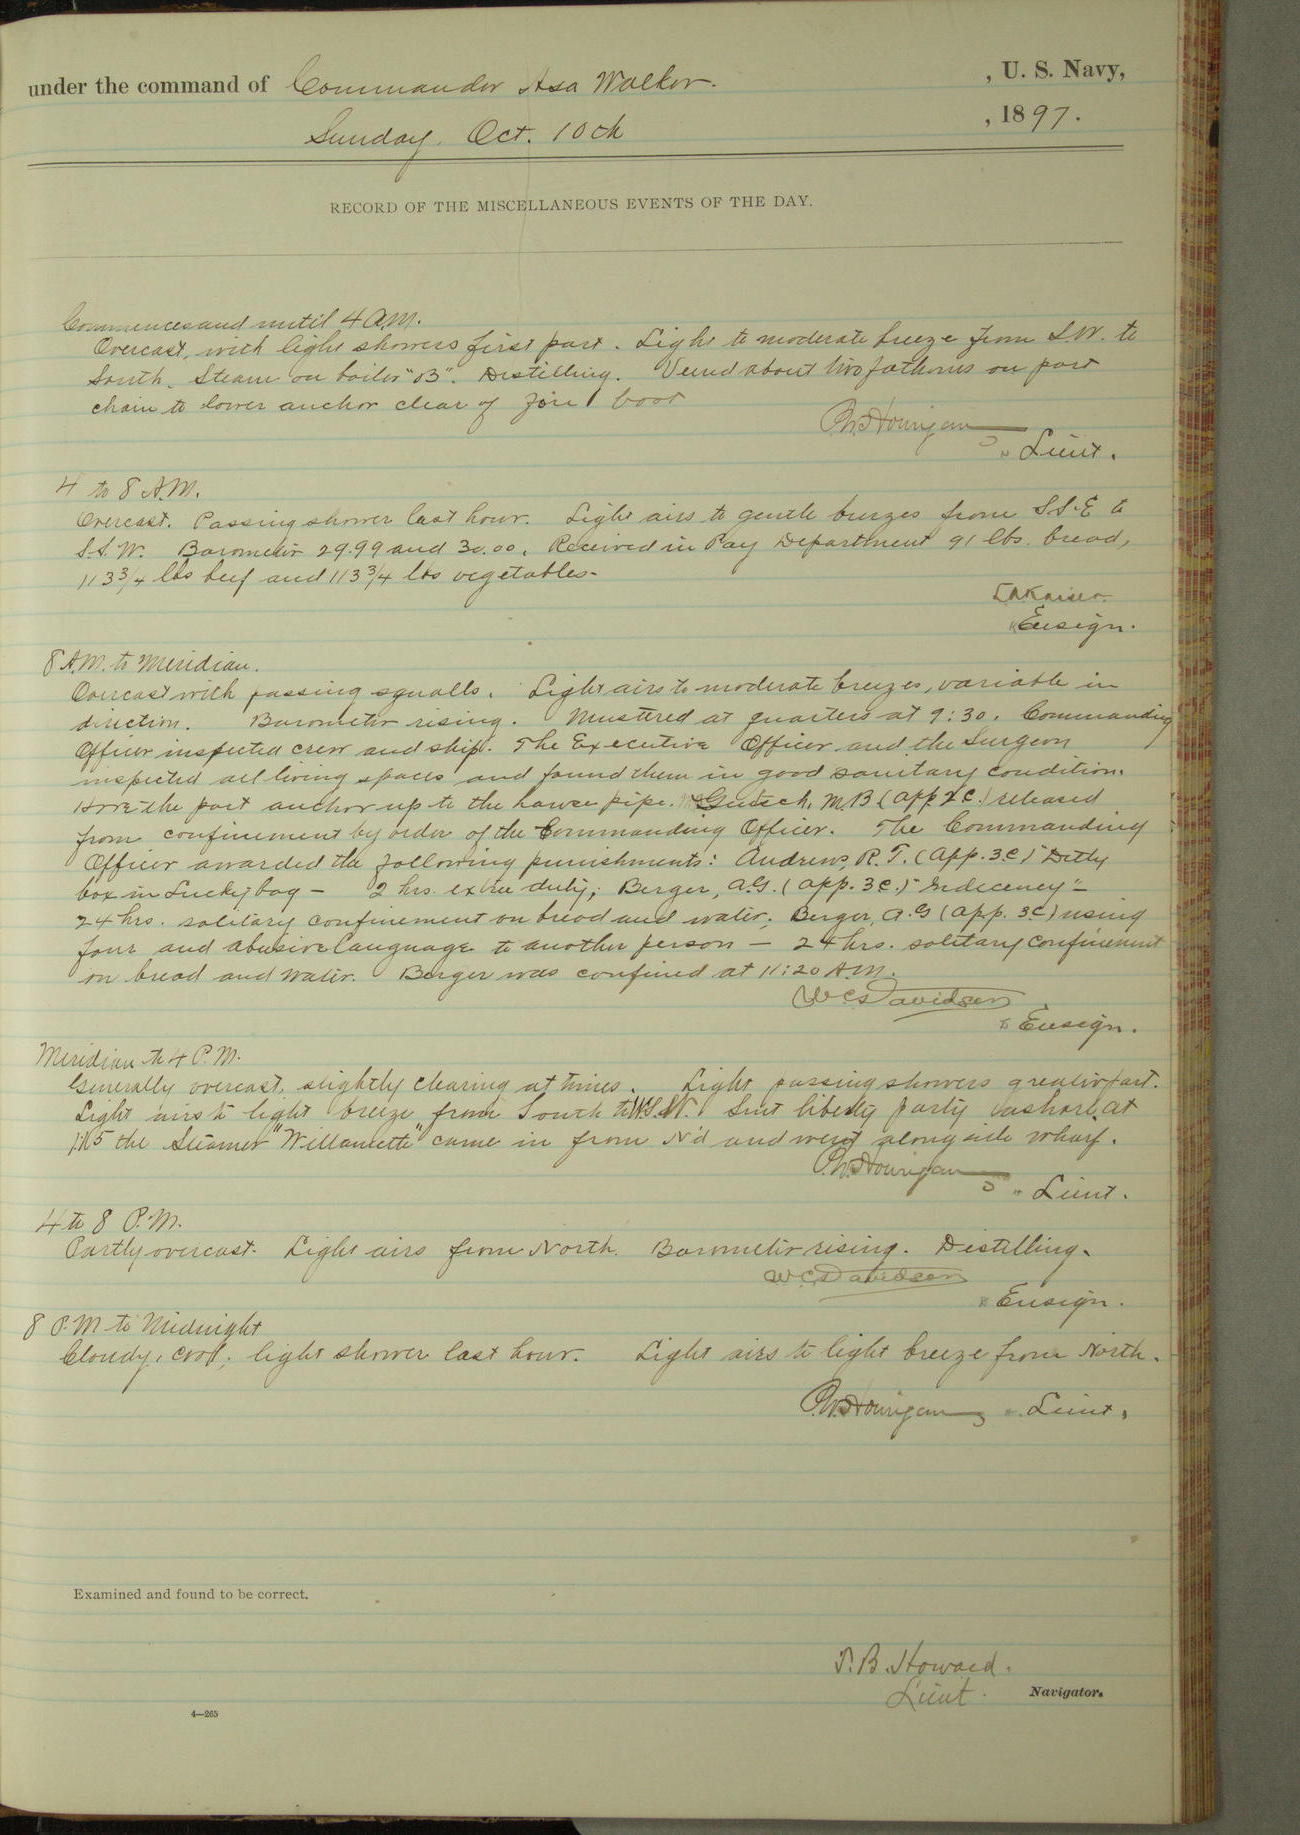 under the command of Commander Asa Walker. , U. S. Navy,
Sunday, Oct. 10th , 1897.
RECORD OF THE MISCELLANEOUS EVENTS OF THE DAY.
Commences and until 4 A.M.
Overcast, with light showers first part. Light to moderate breeze from S.W. to
South. Steam on boiler "B". Distilling. Veered about two fathoms on port
chain to lower anchor clear of fire boat
P.W. Hourigan
Lieut.
4 to 8 A.M.
Overcast. Passing shower last hour. Light airs to gentle breezes from S.S.E to
S.S.W. Barometer 29.99 and 30.00. Received in Pay Department 91 lbs. bread,
113 3/4 lbs beef and 113 3/4 lbs vegetables-
L.A. Kaiser.
Ensign.
8 A.M. to Meridian.
Overcast with passing squalls. Light airs to moderate breezes, variable in
direction. Barometer rising. Mustered at quarters at 9:30. Commanding
Officer inspected crew and ship. The Executive Officer and the Surgeon
inspected all living spaces and found them in good sanitary condition.
Hove the port anchor up to the hawse pipe. M.B (App 2c.) released
from confinement by order of the Commanding Officer. The Commanding
Officer awarded the following punishments: Andrews, R.T. (App. 3c) "Ditty
box in Lucky bag - 2 hrs. extra duty; Berger, A.G. (App. 3c.) "Indecency" -
24 hrs. solitary confinement on bread and water; Berger, A.G (App. 3c) using
foul and abusive language to another person - 24 hrs. solitary confinement
on bread and water. Berger was confined at 11:20 A.M.
W C Davidson
Ensign.
Meridian to 4 P.M.
Generally overcast, slightly clearing at times. Light passing showers greater part.
Light airs to light breeze from South to W.S.W. Sent liberty party ashore. at
the Steamer "Willamette" came in from N'd and went along side wharf.
P.W. Hourigan
Lieut.
4 to 8 P.M.
Partly overcast. Light airs from North. Barometer rising. Distilling.
W C Davidson
Ensign.
8 P.M to Midnight
Cloudy, cool, light shower last hour. Light airs to light breeze from North.
P.W. Hourigan Lieut.
Examined and found to be correct.
T.B. Howard.
Lieut. Navigator.
4—265